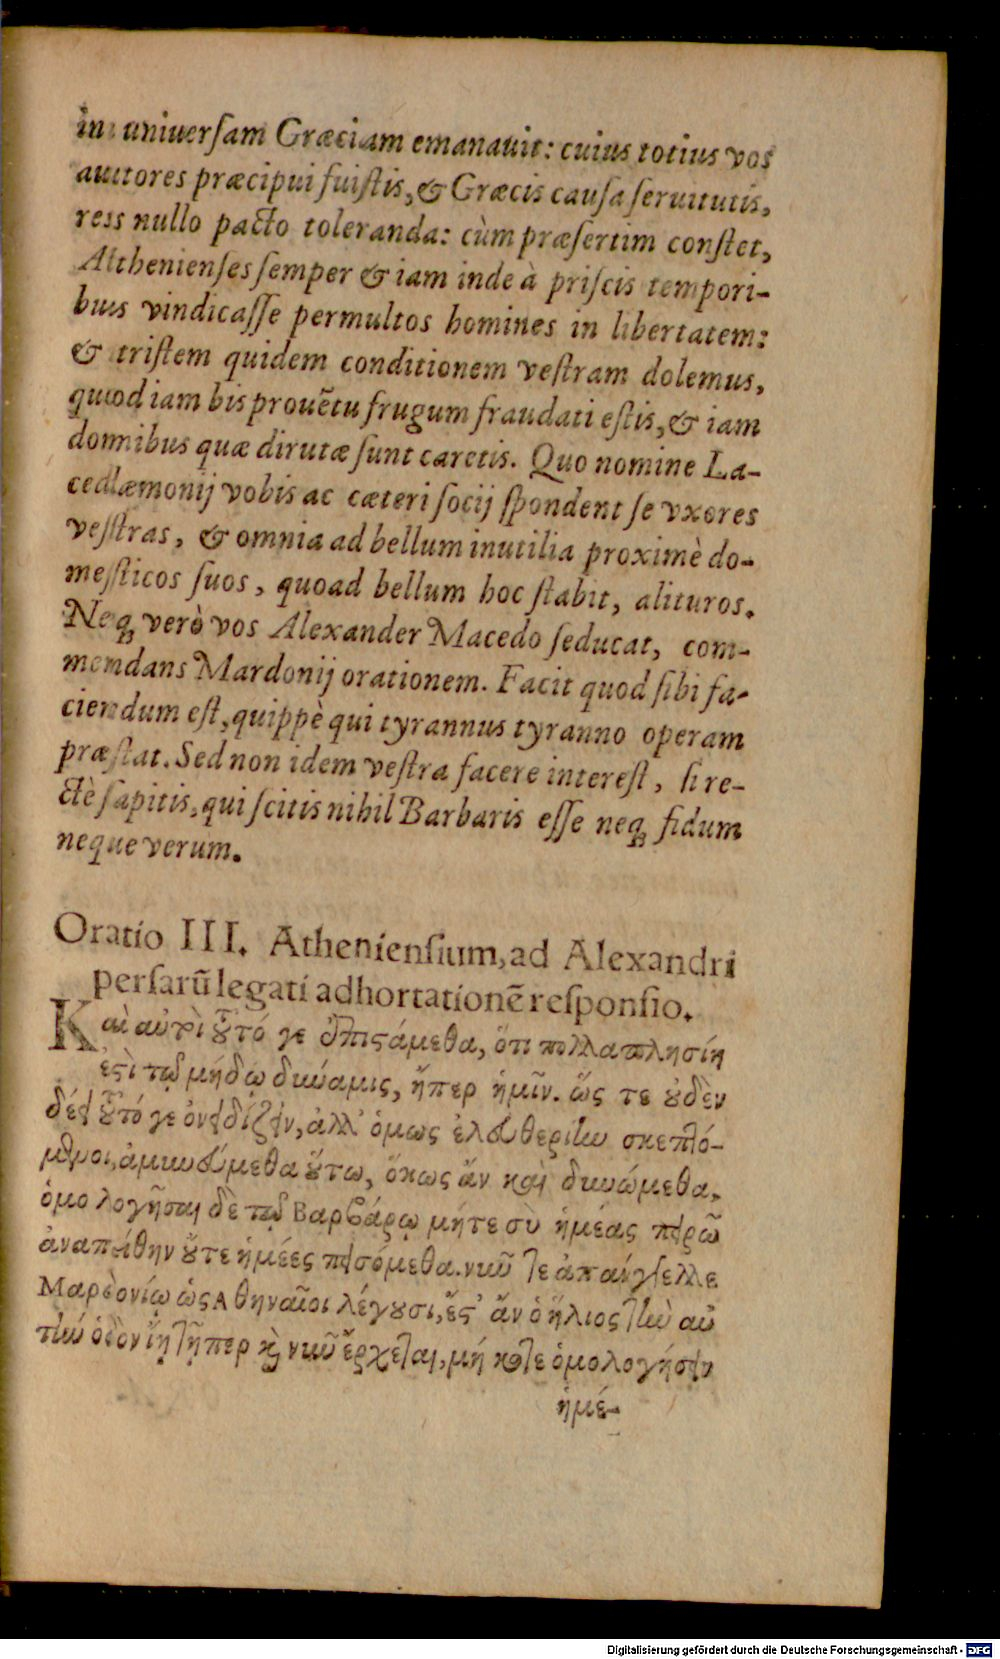 in uniuerſam Græciam emanauit: cuius totius vos
auctores præcipui fuiſtis, & Græcis cauſa ſeruitutis,
res nullo pacto toleranda: cùm præſertim conſtet,
Athenienſes ſemper & iam inde à priſcis tempori-
bus vindicaſſe permultos homines in libertatem:
& triſtem quidem conditionem veſtram dolemus,
quod iam bis prouētu frugum fraudati eſtis, & iam
domibus quæ dirutæ ſunt caretis. Quo nomine La-
cedæmonij vobis ac cæteri ſocij ſpondent ſe vxores
veſtras, & omnia ad bellum inutilia proximè do-
meſticos ſuos, quoad bellum hoc ſtabit, alituros.
Neq; verò vos Alexander Macedo ſeducat, com-
mendans Mardonij orationem. Facit quod ſibi fa-
ciendum eſt, quippè qui tyrannus tyranno operam
præſtat. Sed non idem veſtra facere intereſt, ſi re-
ctè ſapitis, qui ſcitis nihil Barbaris eſſe neq; fidum
neque verum.
Oratio III. Athenienſium, ad Alexandri
perſarū legati adhortationē reſponſio.
Καὶ αὐτοὶ τοῦτό γε ἐπιστάμεθα, ὅτι πολλαπλησίη
ἐστὶ τῷ μήδῳ δύναμις, ἤπερ ἡμῖν. ὥς τε οὐδὲν
δέει τοῦτό γε ὀνειδίζειν, ἀλλ' ὁμως ἐλευθερίην σκεπτό-
μενοι, ἀμυνεύμεθα οὕτω, ὅκως ἄν καὶ δυνώμεθα.
ὁμολογῆσαι δὲ τῷ Βαρβάρῳ μήτε σὺ ἡμέας πειρῶ
ἀναπείθην οὔτε ἡμέες πεισόμεθα. νῦν τε ἀπάγγελλε
Μαρδονίῳ ὡς Αθηναῖοι λέγουσι, ἔς' ἄν ὁ ἥλιος τὴν αὐ
τὴν ὁδὸν ἴῃ τῇπερ καὶ νῦν ἔρχεται, μή κοτε ὁμολογήσειν
ἡμέ-
Digitalisierung gefördert durch die Deutsche Forschungsgemeinschaft - DFG